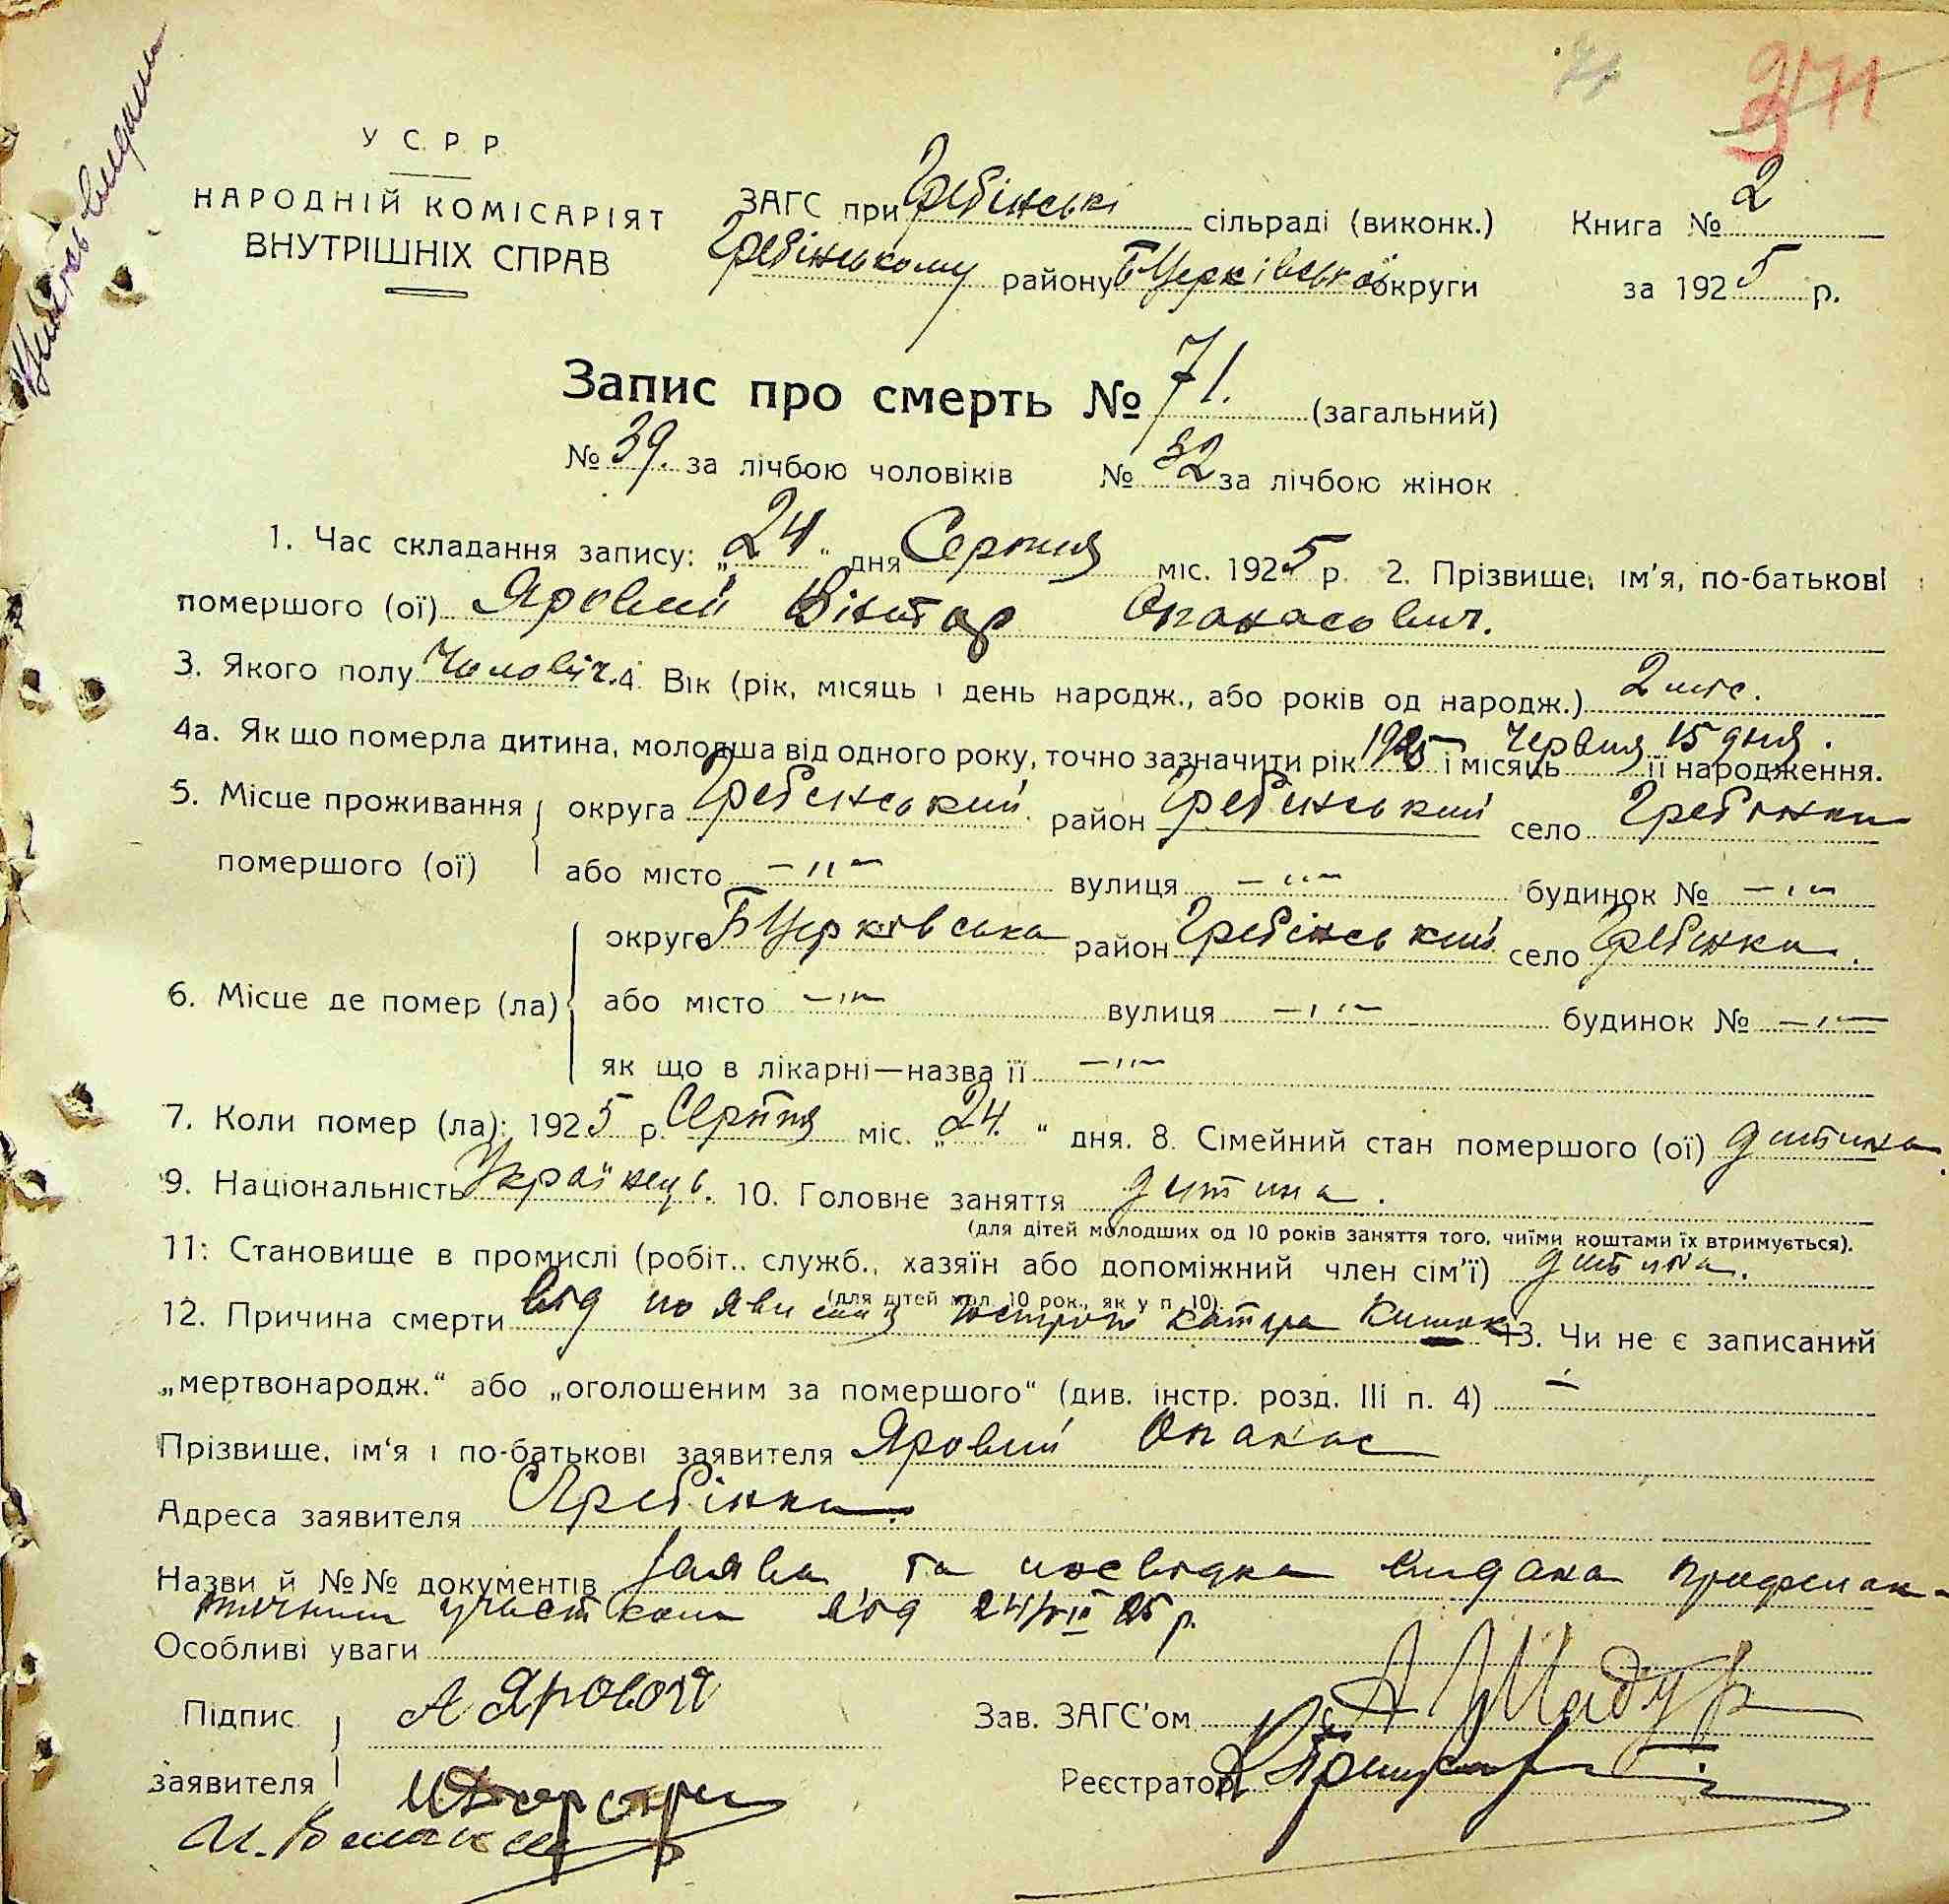 71
371
У С. Р. Р.
НАРОДНІЙ КОМІСАРІЯТ
ВНУТРІШНІХ СПРАВ
ЗАГС при Гребінські сільраді (виконк.)
Гребінському району БЦерківської округи
Книга № 2
за 1925 р.
Запис про смерть № 71. (загальний)
№ 39. за лічбою чоловіків № 32 за лічбою жінок
1. Час складання запису: „24" дня Серпня міс. 1925 р. 2. Прізвище, ім'я, по-батькові
помершого (ої) Яровий Віктор Опанасович.
3. Якого полу Чоловіч. 4. Вік (рік, місяць і день народж., або років од народж.) 2 міс.
4а. Як що померла дитина, молодша від одного року, точно зазначити рік 1925 і місяць Червня 15 дня. її народження.
5. Місце проживання помершого (ої) округа Гребенський район Гребенський село Гребінки
або місто —"— вулиця —"— будинок № —"—
6. Місце де помер (ла) округа БЦерківська район Гребінський село Гребінки.
або місто —"— вулиця —"— будинок № —"—
як що в лікарні—назва її —"—
7. Коли помер (ла): 1925 р. Серпня міс. „24" дня. 8. Сімейний стан помершого (ої) дитина
9. Національність Українець. 10. Головне заняття дитина.
(для дітей молодших од 10 років заняття того, чиїми коштами їх втримується).
11. Становище в промислі (робіт., служб., хазяїн або допоміжний член сім'ї) дитина.
(для дітей мол. 10 рок., як у п. 10).
12. Причина смерти від катара кишок 13. Чи не є записаний
„мертвонародж." або „оголошеним за помершого" (див. інстр. розд. III п. 4) —
Прізвище, ім'я і по-батькові заявителя Яровий Опанас
Адреса заявителя С Гребінки.
Назви й №№ документів Заява та посвідка видана профілак-
тичним участком від 24/VIII 25 р.
Особливі уваги
Підпис заявителя А Яровой
Зав. ЗАГС'ом
Реєстратор